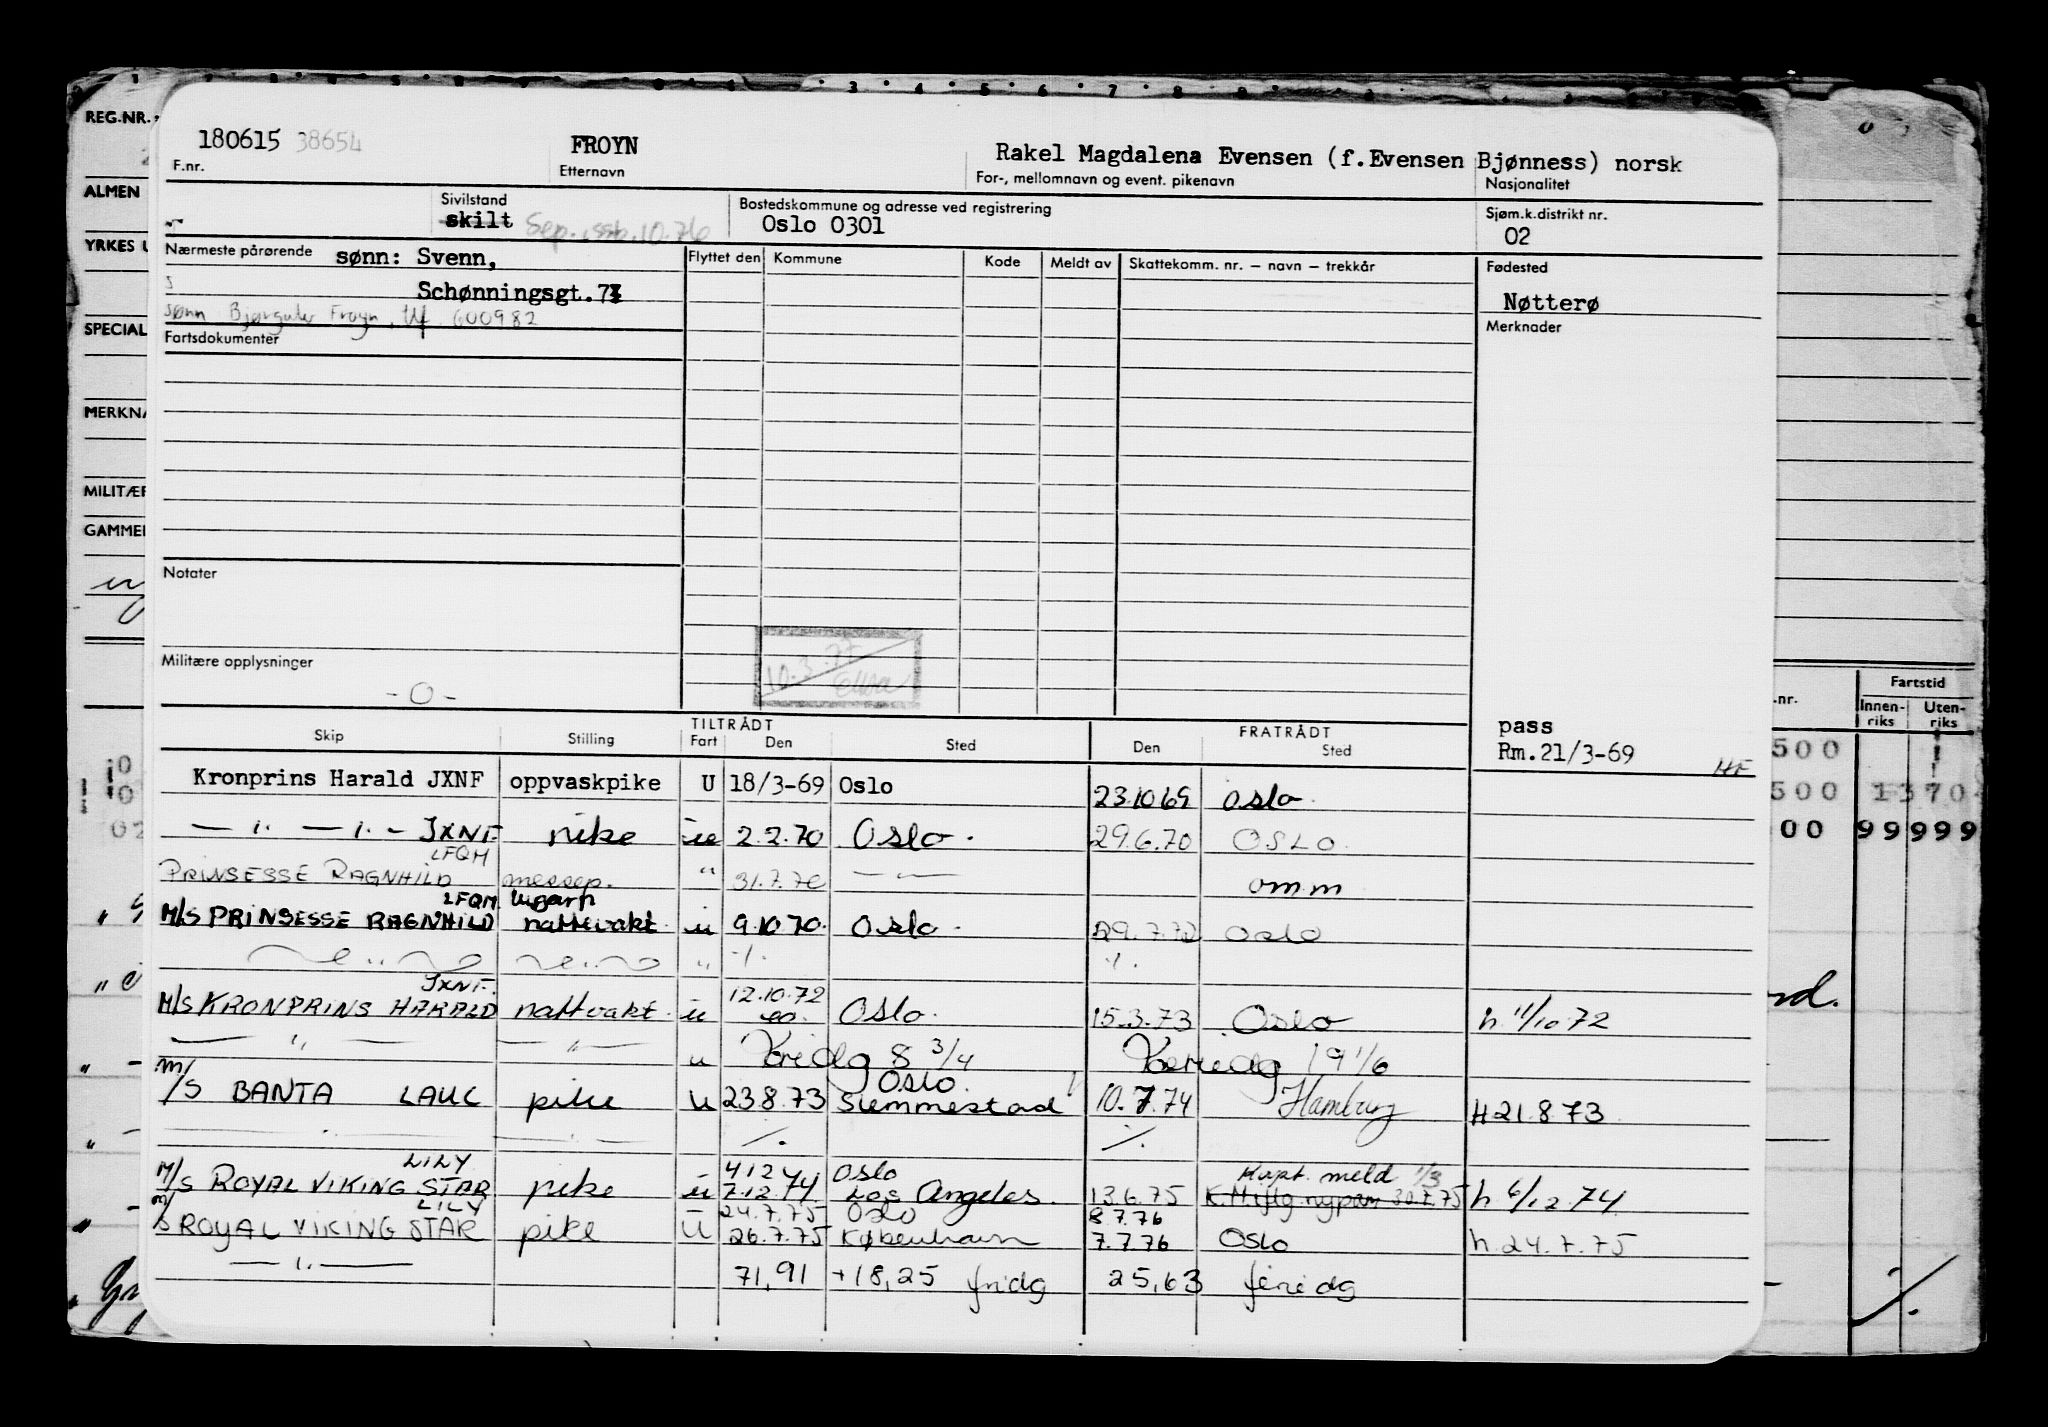 REG.NR.
ALMEN
YRKES U
SPECIAL
MERKNA
MILITÆR
GAMMEL
180615 38654 FROYN Rakel Magdalena Evensen (f.Evensen Bjønness) norsk
F.nr. Etternavn For-, mellomnavn og event. pikenavn Nasjonalitet
Sivilstand Bostedskommune og adresse ved registrering Sjøm.k.distrikt nr.
skilt Sep. 10.76 Oslo 0301 02
Nærmeste pårørende sønn: Svenn, Flyttet den Kommune Kode Meldt av Skattekomm. nr. – navn – trekkår Fødested
Schønningsgt.7 Nøtterø
sønn Froyn, tlf 600982 Merknader
Fartsdokumenter
Notater
10.3.77
Militære opplysninger
-0-
TILTRÅDT FRATRÅDT pass
Skip Stilling Fart Den Sted Den Sted Rm.21/3-69 HF
Kronprins Harald JXNF oppvaskpike U 18/3-69 Oslo 23.10.69 Oslo.
— " — " — JXNF pike u 2.2.70 Oslo. 29.6.70 OSLO.
LFQM
PRINSESSE RAGNHILD messep. " 31.7.70 — " — omm
LFQM lugarp
M/S PRINSESSE RAGNHILD nattevakt u 9.10.70. Oslo. 29.7.72 Oslo
" " ./. ./.
JXNF. 12.10.72
M/S KRONPRINS HARALD nattvakt u Oslo. 15.3.73 Oslo h. 11/10.72
— " — — " — u fridg 8 3/4 feriedg 19 1/6
Oslo.
m/S BANTA LAUC pike u 23.8.73 Slemmestad 10.7.74 Hamburg H 21.8.73
— " — — " — ./. ./.
LILY 4.12.74 Oslo Kapt. meld 1/3
M/S ROYAL VIKING STAR pike u 7.12.74 Los Angeles. 13.6.75 30.7.75 h 6/12.74
LILY 24.7.75 Oslo 8.7.76
m/S ROYAL VIKING STAR pike U 26.7.75 København 7.7.76 Oslo h. 24.7.75
— " — 71,91 +18,25 fridg 25,63 feriedg
.nr. Fartstid
Innen-riks Uten-riks
500
500 1370
00 99999